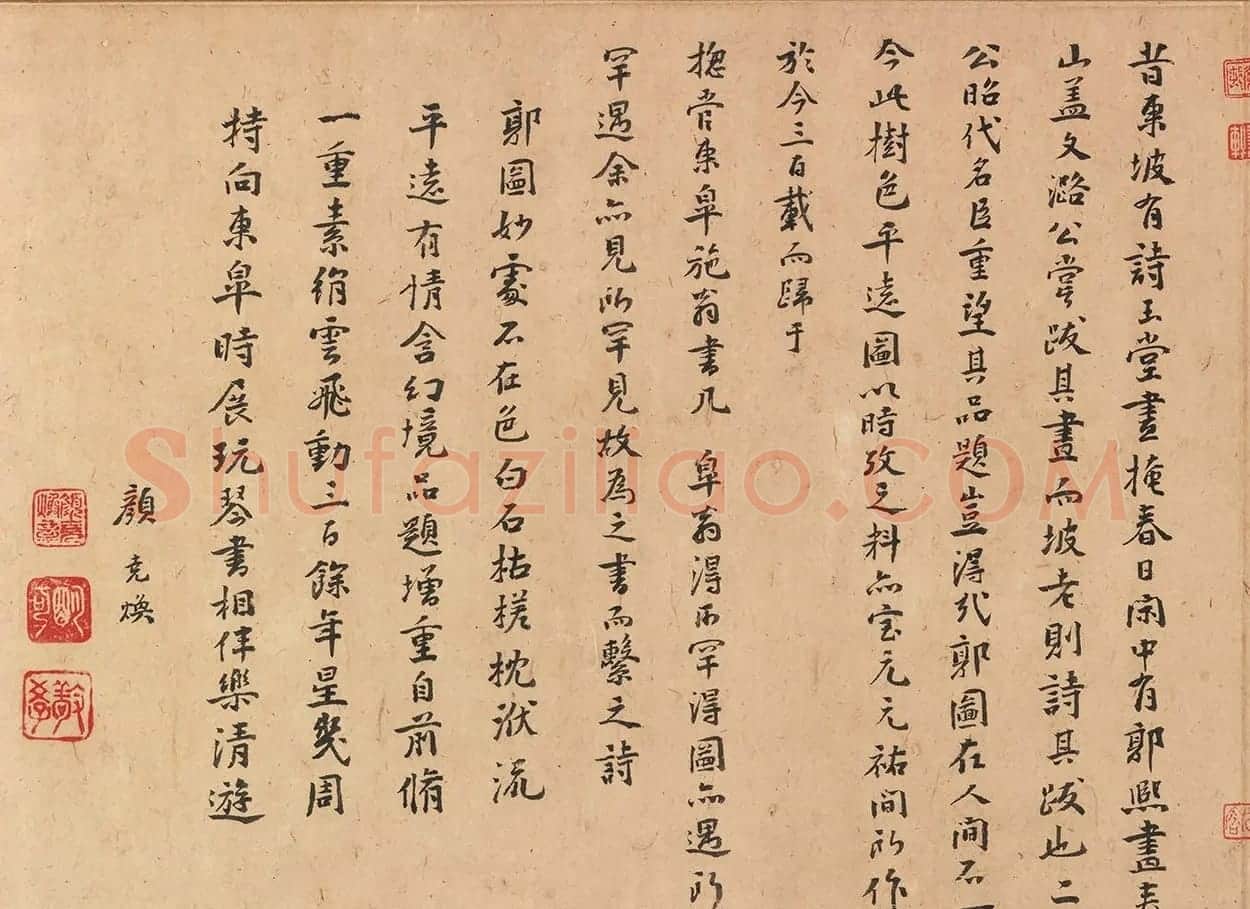 昔東坡有詩玉堂晝掩春日閑中有郭熙畫春
山盖文潞公嘗跋其畫而坡老則詩其跋也二
公昭代名臣重望其品題豈得郭圖在人間不
今此樹色平遠圖以時攷之料亦宝元元祐間所作
於今三百載而歸于
揔管東皐施翁書几 皐翁得所罕得圖亦遇所
罕遇余亦見所罕見故為之書而繫之詩
郭圖妙處不在色白石枯槎枕洑流
平遠有情含幻境品題增重自前脩
一重素綃雲飛動三百餘年星幾周
特向東皐時展玩琴書相伴樂清遊
顏堯煥
Shufaziliao.com